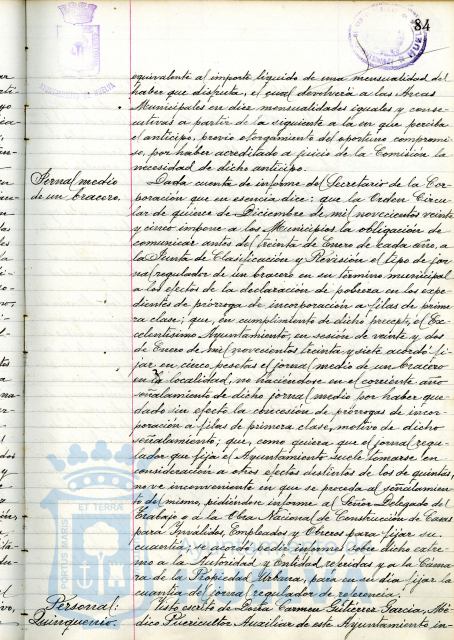 84
equivalente al importe líquido de una mensualidad del
haber que disfruta, el cual devolverá a las Arcas
Municipales en diez mensualidades iguales y conse-
cutivas a partir de la siguiente a la en que perciba
el anticipo, previo otorgamiento del oportuno compromi-
so, por haber acreditado a juicio de la Comisión la
necesidad de dicho anticipo.
Jornal medio
de un bracero.
Dada cuenta de informe del Secretario de la Cor-
poración que en esencia dice: que la Orden Circu-
lar de quince de Diciembre de mil novecientos veinte
y cinco impone a los Municipios la obligación de
comunicar antes del treinta de Enero de cada año, a
la Junta de Clasificación y Revisión el tipo de jor-
nal regulador de un bracero en su término municipal
a los efectos de la declaración de pobreza en los expe-
dientes de prórroga de incorporación a filas de prime-
ra clase; que, en cumplimiento de dicho precepto, el Ex-
celentísimo Ayuntamiento, en sesión de veinte y dos
de Enero de mil novecientos treinta y siete acordó fi-
jar en cinco pesetas el jornal medio de un bracero
en la localidad, no haciéndose en el corriente año
señalamiento de dicho jornal medio por haber que-
dado sin efecto la concesión de prórrogas de incor-
poración a filas de primera clase, motivo de dicho
señalamiento; que, como quiera que el jornal regu-
lador que fija el Ayuntamiento suele tomarse en
consideración a otros efectos distintos de los de quintas,
no ve inconveniente en que se proceda al señalamien-
to del mismo, pidiéndose informe al Señor Delegado del
Trabajo y a la Obra Nacional de Construcción de Casas
para Inválidos, Empleados y Obreros para fijar su
cuantía, se acordó pedir informe sobre dicho extre-
mo a la Autoridad y Entidad referidas y a la Cáma-
ra de la Propiedad Urbana, para en su día fijar la
cuantía del jornal regulador de referencia.
Personal:
Quinquenio.
Visto escrito de Doña Carmen Gutiérrez García, Mé-
dico Puericultor Auxiliar de este Ayuntamiento, in-
PORTUS MARIS
ET TERRA